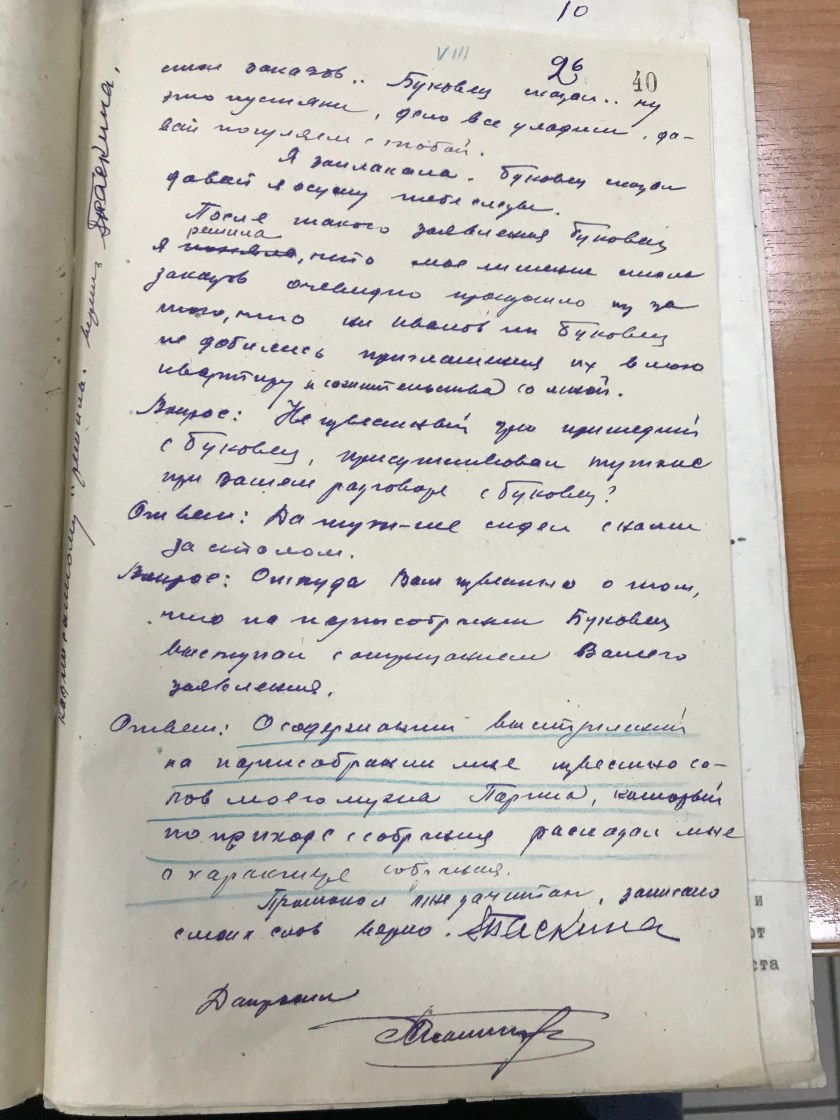 10
VIII
26
40
стол заказов.. Буковец сказал.. ну
это пустяки, дело все уладим. да-
вай погуляем с тобой.
Я заплакала. Буковец сказал
давай я осушу тебе слезы.
После такого заявления Буковец
решила
я поняла, что мое лишение стола
заказов очевидно произошло из за
того, что ни Иванов ни Буковец
не добились приглашения их в мою
квартиру и сожительства со мной.
Вопрос: Неизвестный Вам пришедший
с Буковец, присутствовал тут же
при Вашем разговоре с Буковец?
Ответ: Да тут-же сидел с нами
за столом.
Вопрос: Откуда Вам известно о том,
что на партсобрании Буковец
выступал с Вашего
заявления.
Ответ: О содержании выступлений
на партсобрании мне известно со-
слов моего мужа, который
по приходе с собрания рассказал мне
о характере собрания.
Протокол мне зачитан, записано
с моих слов верно. Таскина
Допросил
надписанному "решила" верить Таскина,
и
от
ста